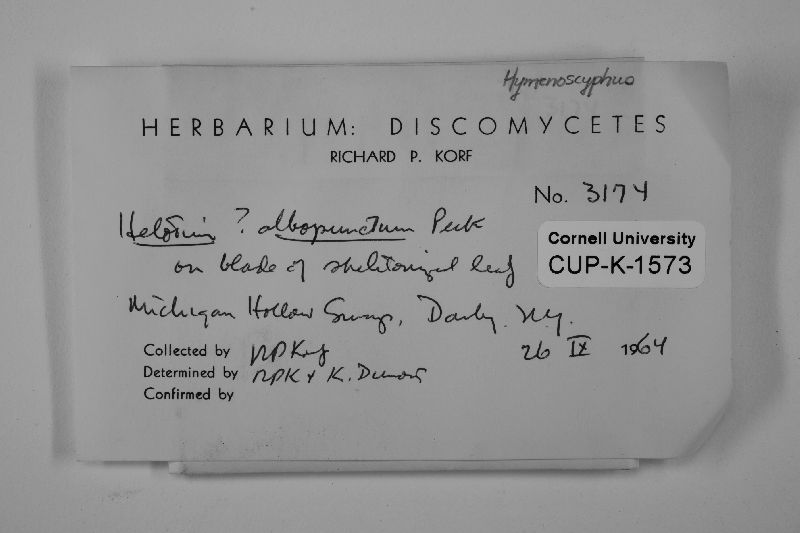 Hymenoscyphus
HERBARIUM: DISCOMYCETES
RICHARD P. KORF
No. 3174
Helotium ? albopunctum Peck
Cornell University
CUP-K-1573
on blade of skeletonized leaf
Michigan Hollow Swamp, Danby, NY.
Collected by RPKorf
26 IX 1964
Determined by RPK + K. Dumont
Confirmed by